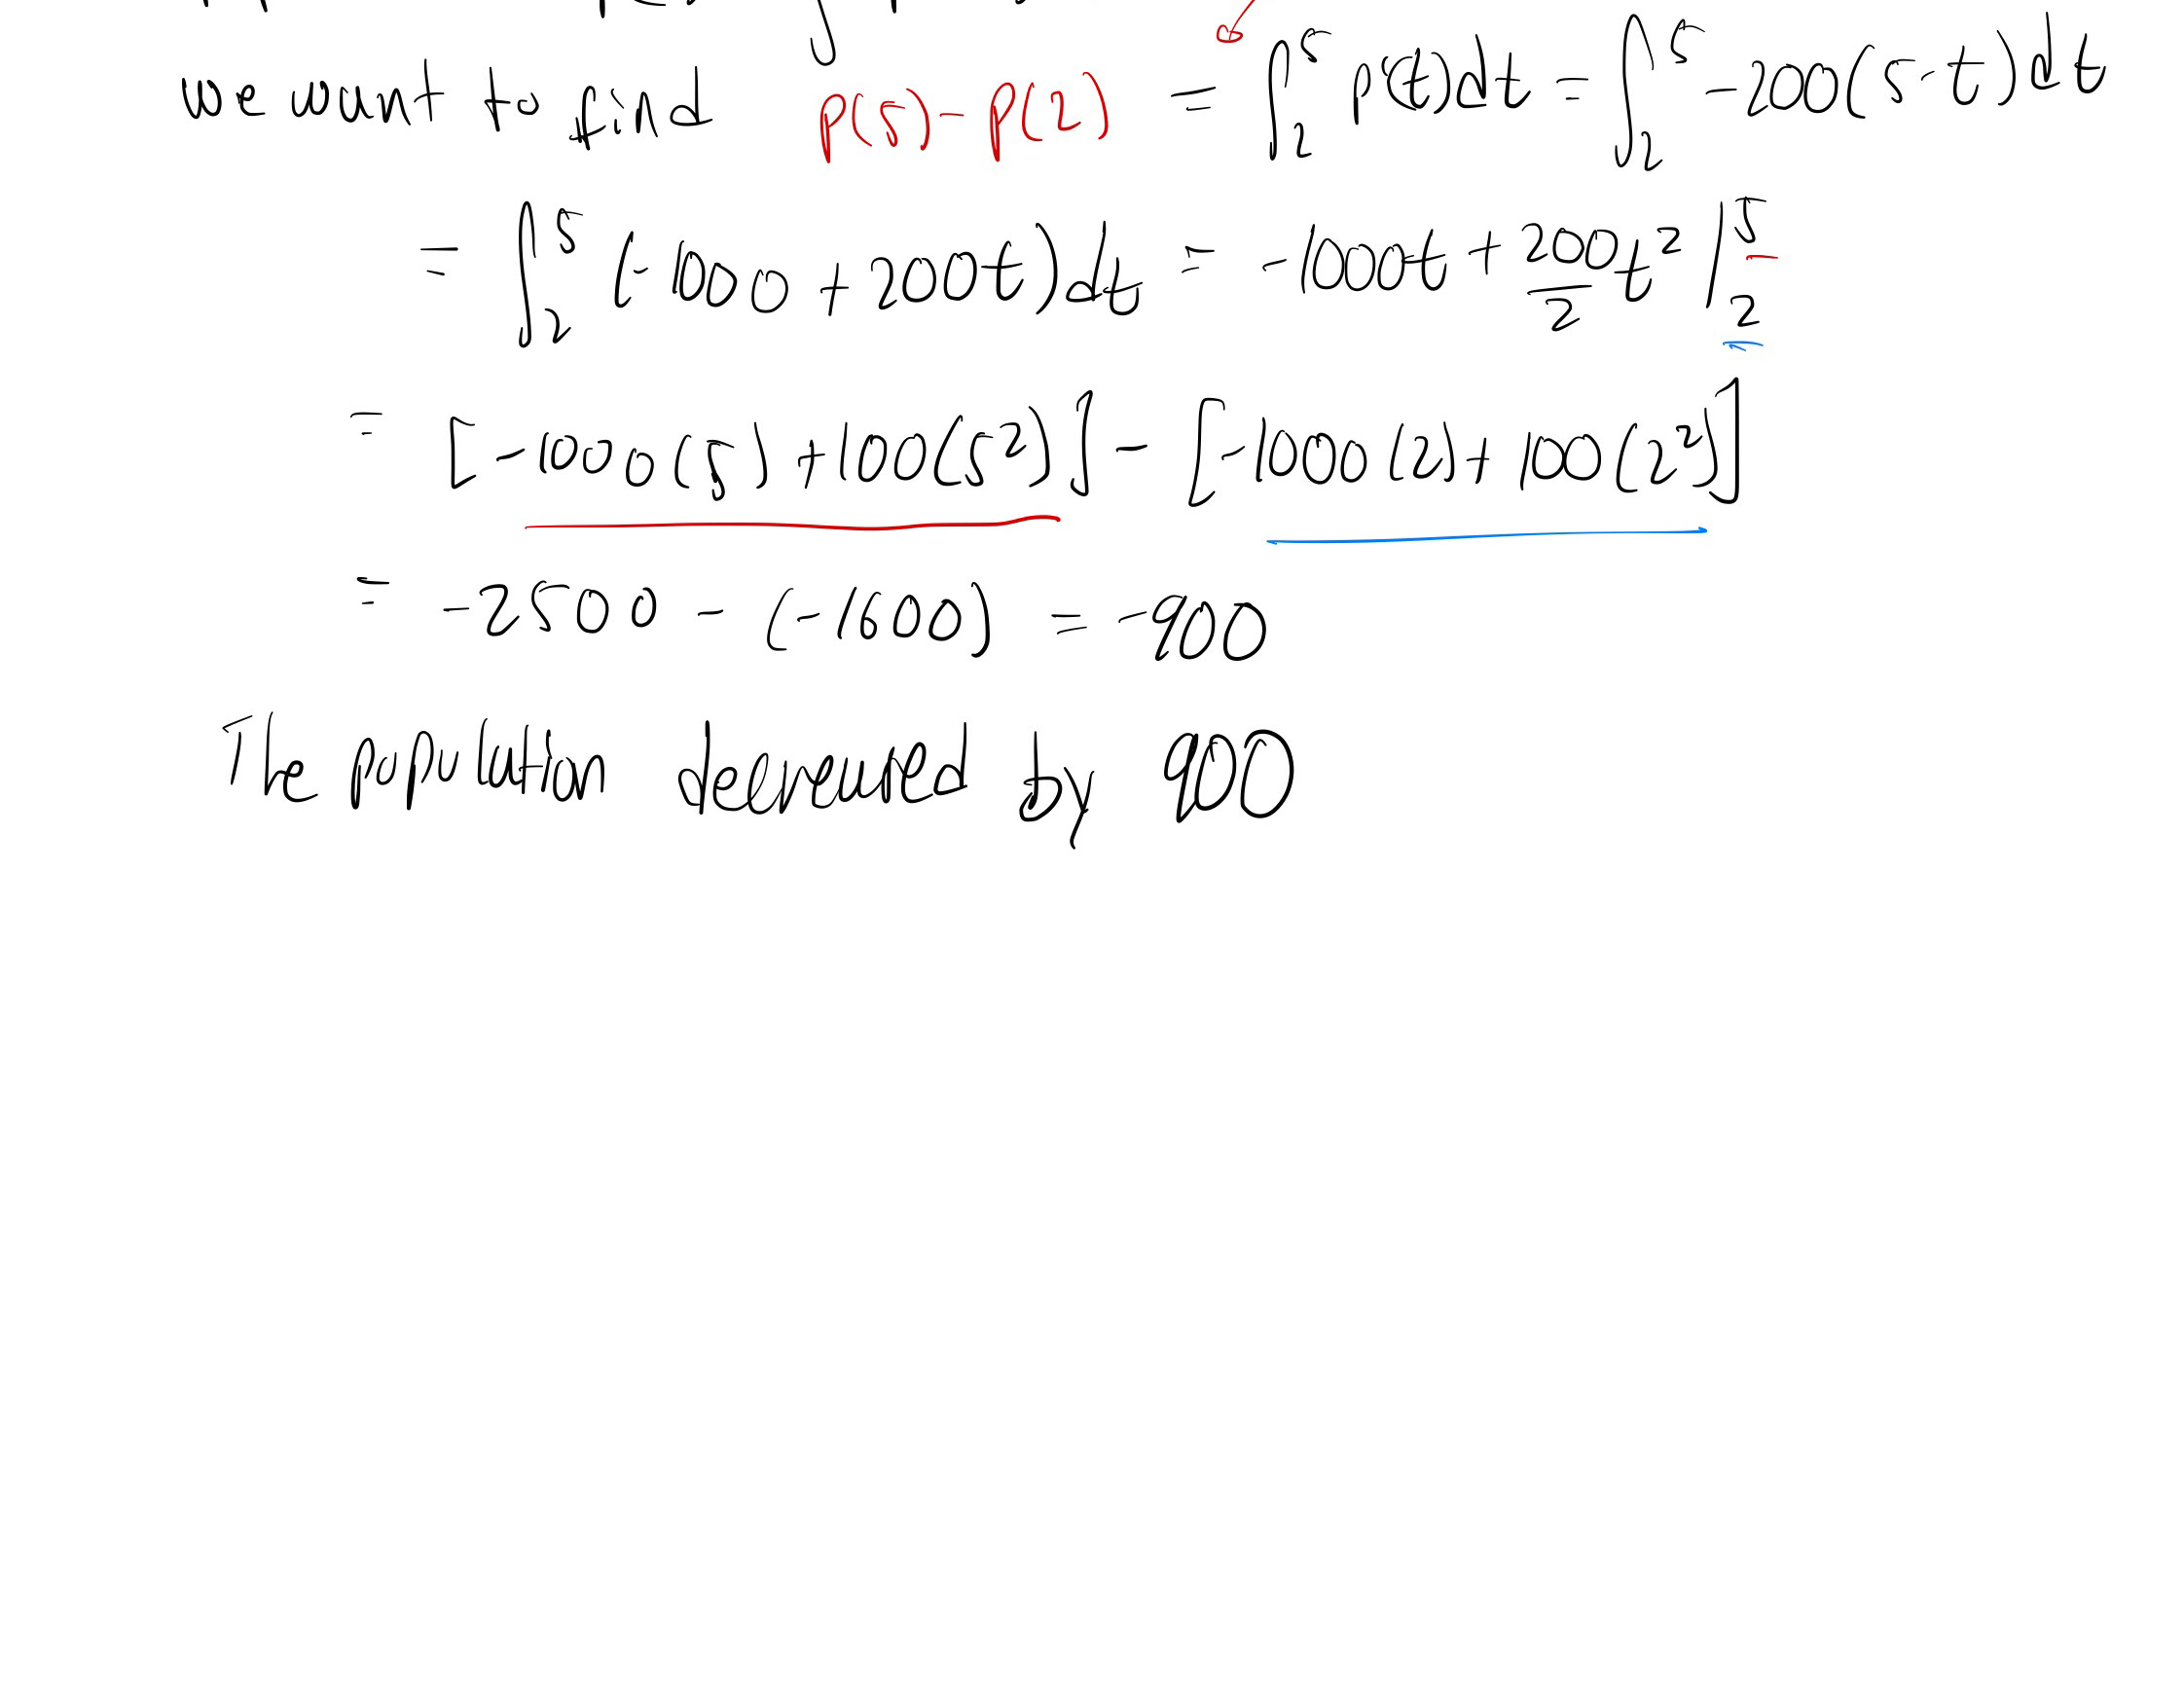 we want to find P(5) - P(2) = ∫₂⁵ p(t)dt = ∫₂⁵ -200(5-t)dt
= ∫₂⁵ (-1000 + 200t)dt = -1000t + 200/2 t² |₂⁵
= [-1000(5) + 100(5²)] - [-1000(2) + 100(2²)]
= -2500 - (-1600) = -900
The population decreased by 900